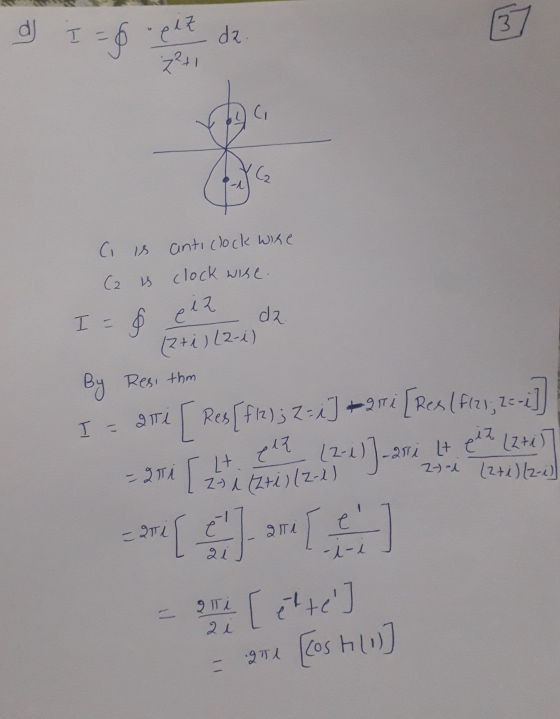 d) I = ∮ e^{iz} / z²+1 dz.
3
i C₁
-i C₂
C₁ is anticlockwise
C₂ is clockwise.
I = ∮ e^{iz} / (z+i)(z-i) dz
By Resi thm
I = 2πi [Res[f(z); z=i] - 2πi [Res(f(z), z=-i]]
= 2πi [lt z→i e^{iz} / (z+i)(z-i) (z-i)] - 2πi lt z→-i e^{iz} (z+i) / (z+i)(z-i)
= 2πi [e^{-1} / 2i] - 2πi [e^{1} / -i-i]
= 2πi / 2i [e^{-1} + e^{1}]
= 2πi [cosh(1)]